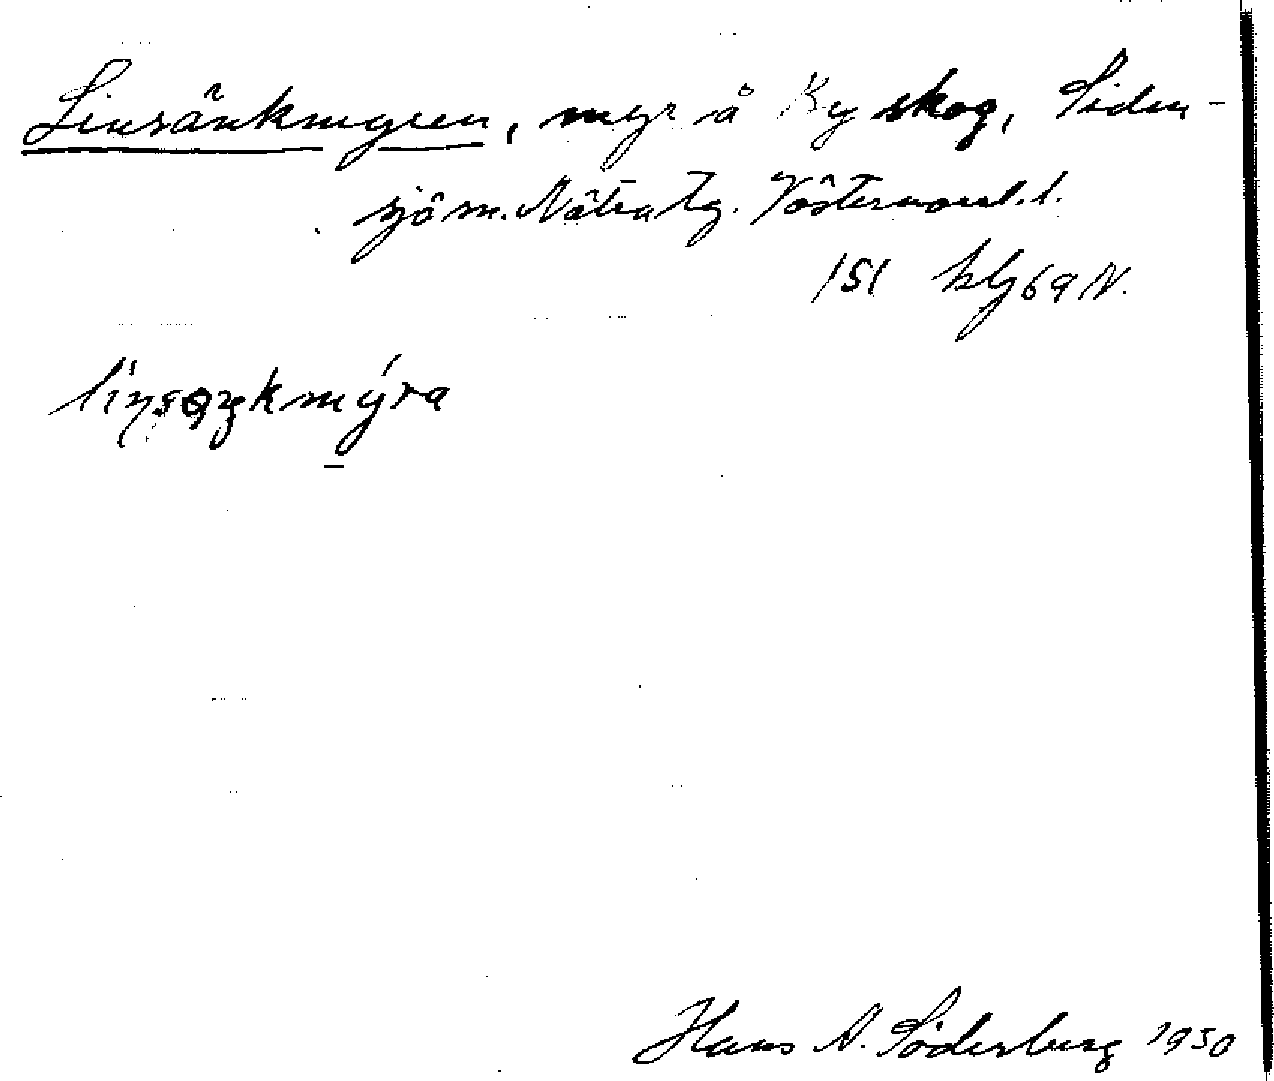 Linsänkmyren, myr å By skog, Siden-
sjö sn. Nätra tg. Västernorrl. l.
151 blg 69 N.
Hans A. Söderberg 1930